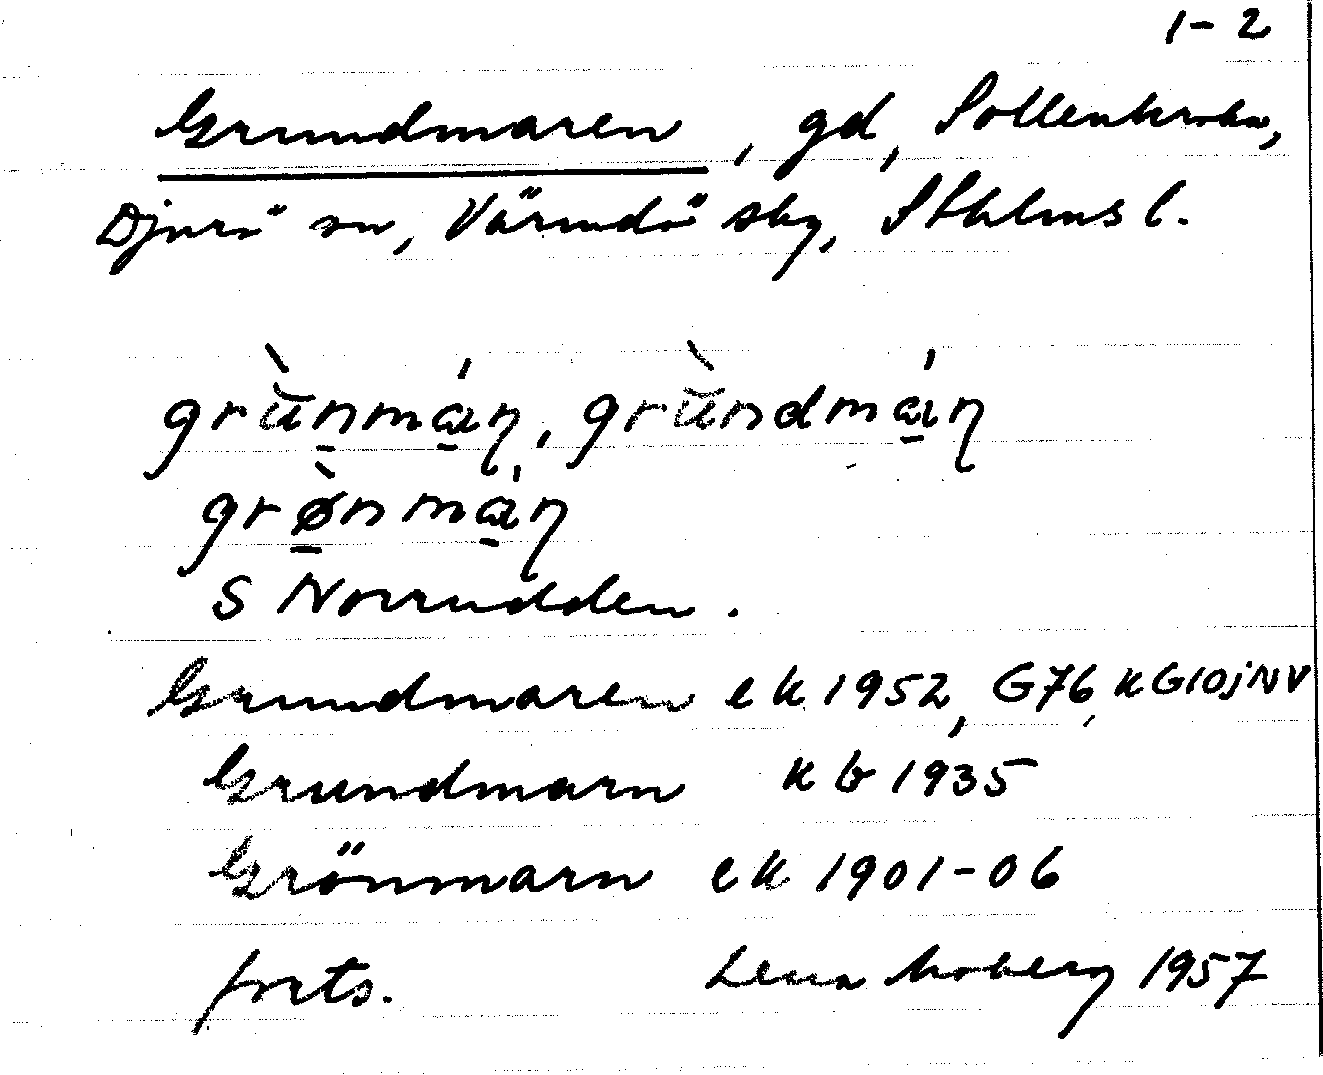 1-2
Grundmaren, gd, Sollenkroka,
Djurö sn, Värmdö skg, Sthlms l.
grùnmáṇ, grùndmáṇ
grø̀nmáṇ
S Norrudden.
Grundmaren ek 1952, G76, KG10jNV
Grundmarn kb 1935
Grönmarn ek 1901-06
forts. Lena Moberg 1957